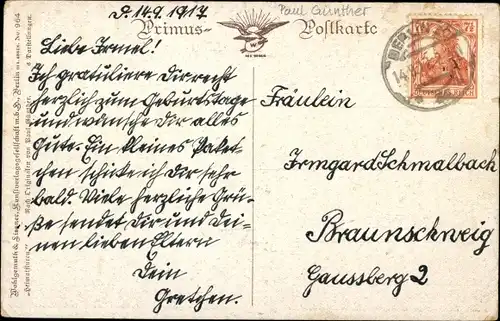 D. 14.9.1917
Paul Günther
Primus-Postkarte
Liebe Irmel!
Ich gratuliere Dir recht
herzlich zum Geburtstage
und wünsche Dir alles
Gute. Ein kleines Paket-
chen schicke ich Dir sehr
bald. Viele herzliche Grü-
ße sendet Dir und Dei-
nen lieben Eltern
Dein
Gretchen.
Fräulein
Irmgard Schmalbach
Braunschweig
Gaussberg 2
BERLIN
14.9.17
7½ 7½
DEUTSCHES REICH
Wohlgemuth & Lissner, Kunstverlagsgesellschaft m.b.H., Berlin No. 964
Nach Originalen von Paul